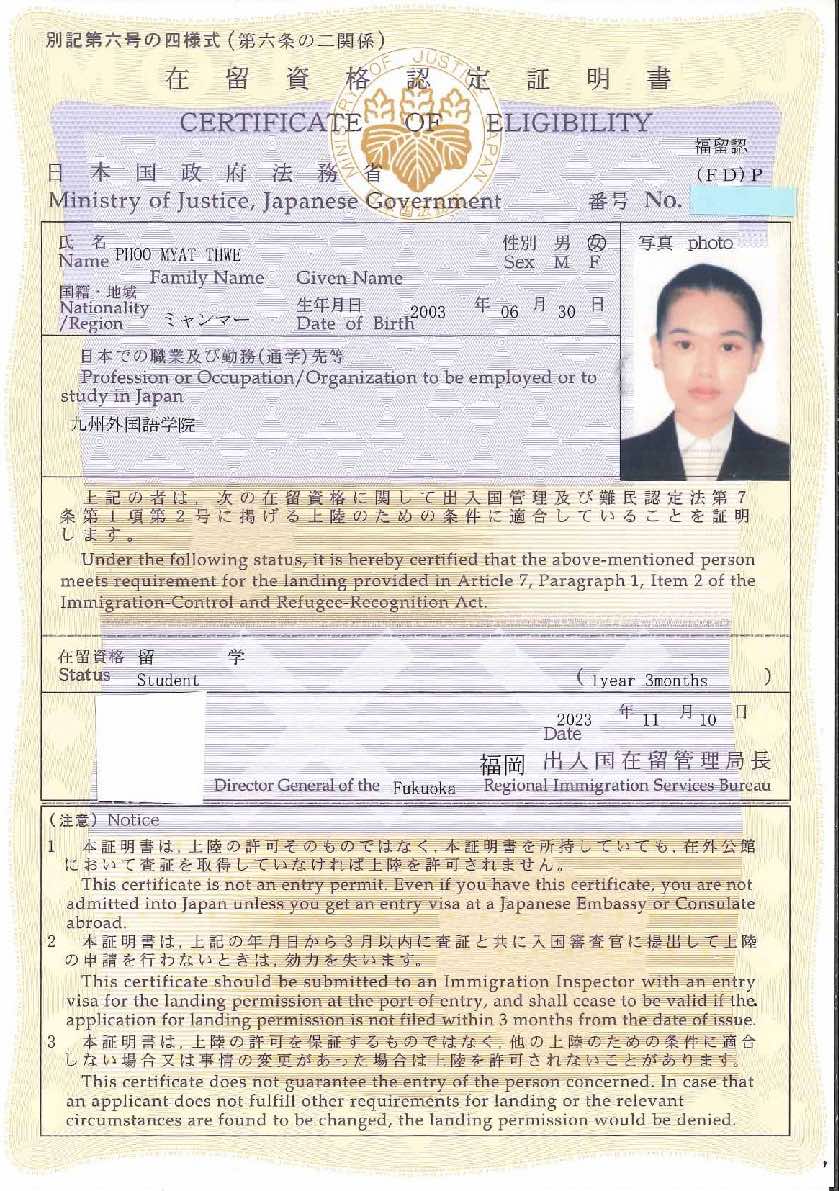 別記第六号の四様式（第六条の二関係）
在留資格認定証明書
CERTIFICATE OF ELIGIBILITY
MINISTRY OF JUSTICE, JAPAN
福留認
日本国政府法務省
(FD)P
Ministry of Justice, Japanese Government 番号 No.
氏名 PHOO MYAT THWE 性別 男 女 写真 photo
Name Sex M F
Family Name Given Name
国籍・地域 生年月日 2003 年 06 月 30 日
Nationality
/Region ミャンマー Date of Birth
日本での職業及び勤務(通学)先等
Profession or Occupation/Organization to be employed or to
study in Japan
九州外国語学院
上記の者は，次の在留資格に関して出入国管理及び難民認定法第7
条第1項第2号に掲げる上陸のための条件に適合していることを証明
します。
Under the following status, it is hereby certified that the above-mentioned person
meets requirement for the landing provided in Article 7, Paragraph 1, Item 2 of the
Immigration-Control and Refugee-Recognition Act.
在留資格 留 学
Status Student ( 1year 3months )
2023 年 11 月 10 日
Date
福岡 出入国在留管理局長
Director General of the Fukuoka Regional Immigration Services Bureau
(注意) Notice
1 本証明書は，上陸の許可そのものではなく，本証明書を所持していても，在外公館
において査証を取得していなければ上陸を許可されません。
This certificate is not an entry permit. Even if you have this certificate, you are not
admitted into Japan unless you get an entry visa at a Japanese Embassy or Consulate
abroad.
2 本証明書は，上記の年月日から3月以内に査証と共に入国審査官に提出して上陸
の申請を行わないときは，効力を失います。
This certificate should be submitted to an Immigration Inspector with an entry
visa for the landing permission at the port of entry, and shall cease to be valid if the
application for landing permission is not filed within 3 months from the date of issue.
3 本証明書は，上陸の許可を保証するものではなく，他の上陸のための条件に適合
しない場合又は事情の変更があった場合は上陸を許可されないことがあります。
This certificate does not guarantee the entry of the person concerned. In case that
an applicant does not fulfill other requirements for landing or the relevant
circumstances are found to be changed, the landing permission would be denied.